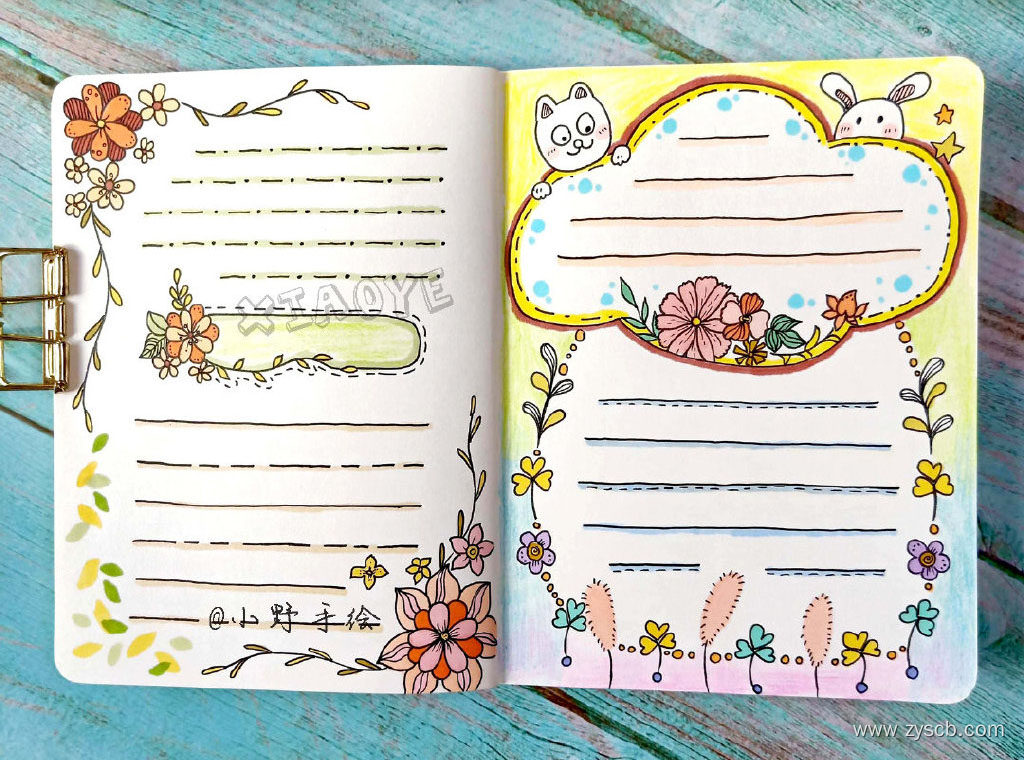 XIAOYE
@小野手绘
www.zyscb.com